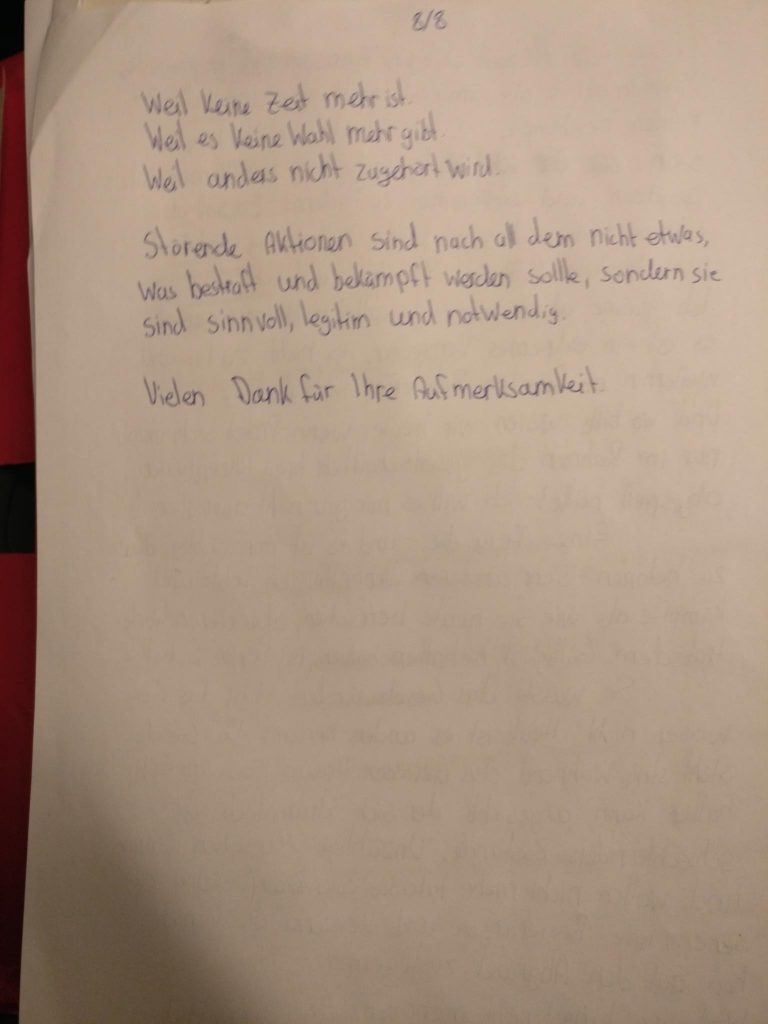 8/8
Weil keine Zeit mehr ist.
Weil es keine Wahl mehr gibt.
Weil anders nicht zugehört wird.
Störende Aktionen sind nach all dem nicht etwas,
was bestraft und bekämpft werden sollte, sondern sie
sind sinnvoll, legitim und notwendig.
Vielen Dank für Ihre Aufmerksamkeit.